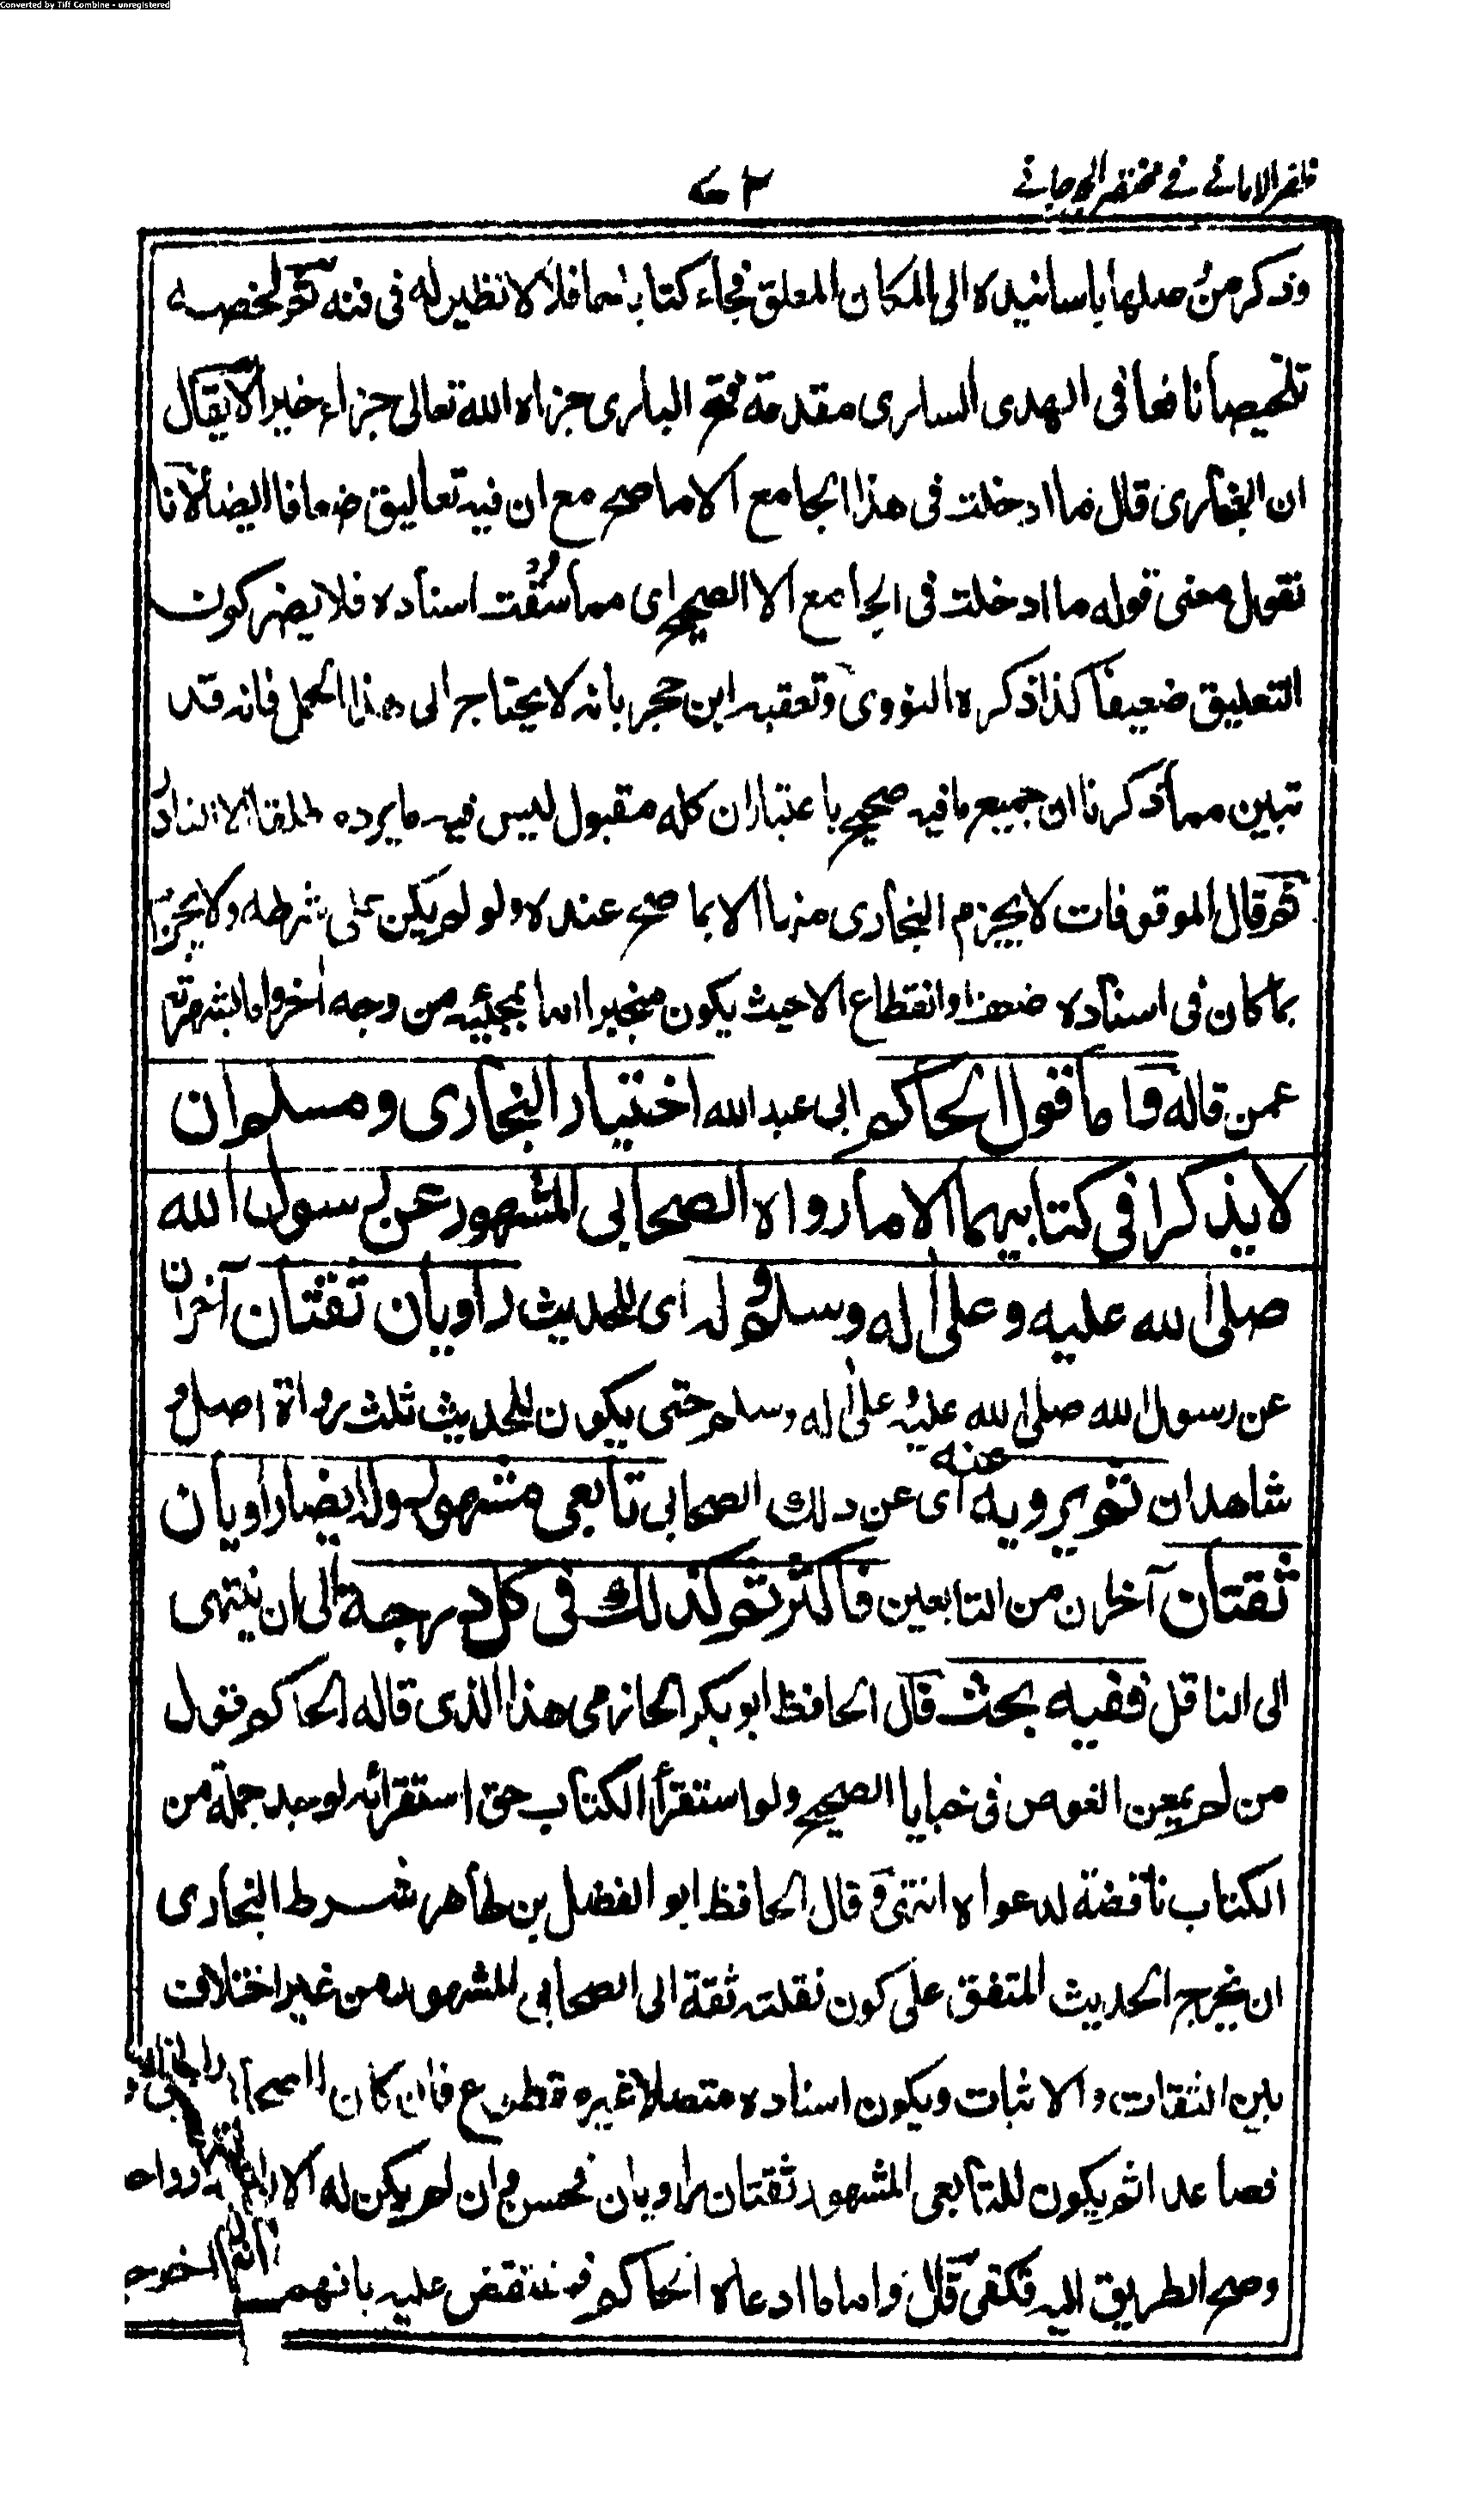 Converted by Tiff Combine - unregistered
ظفر الامانی فی مختصر الجرجانی
٧٣
وذكر من وصلها باسانيده الى المكان المعلق فجاء كتابا حافلا لا نظير له فى فنه ثم لخصه
تلخيصا نافعا فى الهدى السارى مقدمة فتح البارى جزاه الله تعالى جزاء خيرا لا يقال
ان البخارى قال ما ادخلت فى هذا الجامع الا ما صح مع ان فيه تعاليق ضعافا ايضا لانا
نقول معنى قوله ما ادخلت فى الجامع الا الصحيح اى مما سُقت اسناده فلا يضر كون
التعليق ضعيفا كذا ذكره النووى وتعقبه ابن حجر بانه لا يحتاج الى هذا الحمل فانه قد
تبين مما ذكرنا ان جميع ما فيه صحيح باعتبار ان كله مقبول ليس فيه ما يرده مطلقا الا النادر
ثم قال الموقوفات لا يجزم البخارى منها الا بما صح عنده ولو لم يكن على شرطه ولا يجزم
بما كان فى اسناده ضعف وانقطاع الا حيث يكون منجبرا اما بمجيئه من وجه اخر واما بشهرته
عمن قاله واما قول الحاكم ابى عبد الله اختيار البخارى ومسلم ان
لا يذكرا فى كتابيهما الا ما رواه الصحابى المشهور عن رسول الله
صلى الله عليه وعلى اله وسلم وله اى للحديث راويان ثقتان آخران
عن رسول الله صلى الله عليه وعلى اله وسلم حتى يكون للحديث ثلث رواة اصل و
شاهدان ثم يرويه عنه اى عن ذلك الصحابى تابعى مشهور وله ايضا راويان
ثقتان آخران من التابعين فاكثر ثم كذلك فى كل درجة الى ان ينتهى
الى الناقل ففيه بحث قال الحافظ ابو بكر الحازمى هذا الذى قاله الحاكم قول
من لم يمعن الغوص فى خبايا الصحيح ولو استقرأ الكتاب حق استقرائه لوجد جملة من
الكتاب ناقضة لدعواه انتهى وقال الحافظ ابو الفضل بن طاهر شرط البخارى
ان يخرج الحديث المتفق على كون نقلته ثقة الى الصحابى المشهور من غير اختلاف
بين الثقات والاثبات ويكون اسناده متصلا غير مقطوع فان كان للصحابى راويان
فصاعدا ثم يكون للتابعى المشهور ثقتان راويان فحسن وان لم يكن له الا راو رواه
وصح الطريق اليه فكفى قال واما ما ادعاه الحاكم فمنتقض عليه بانهما